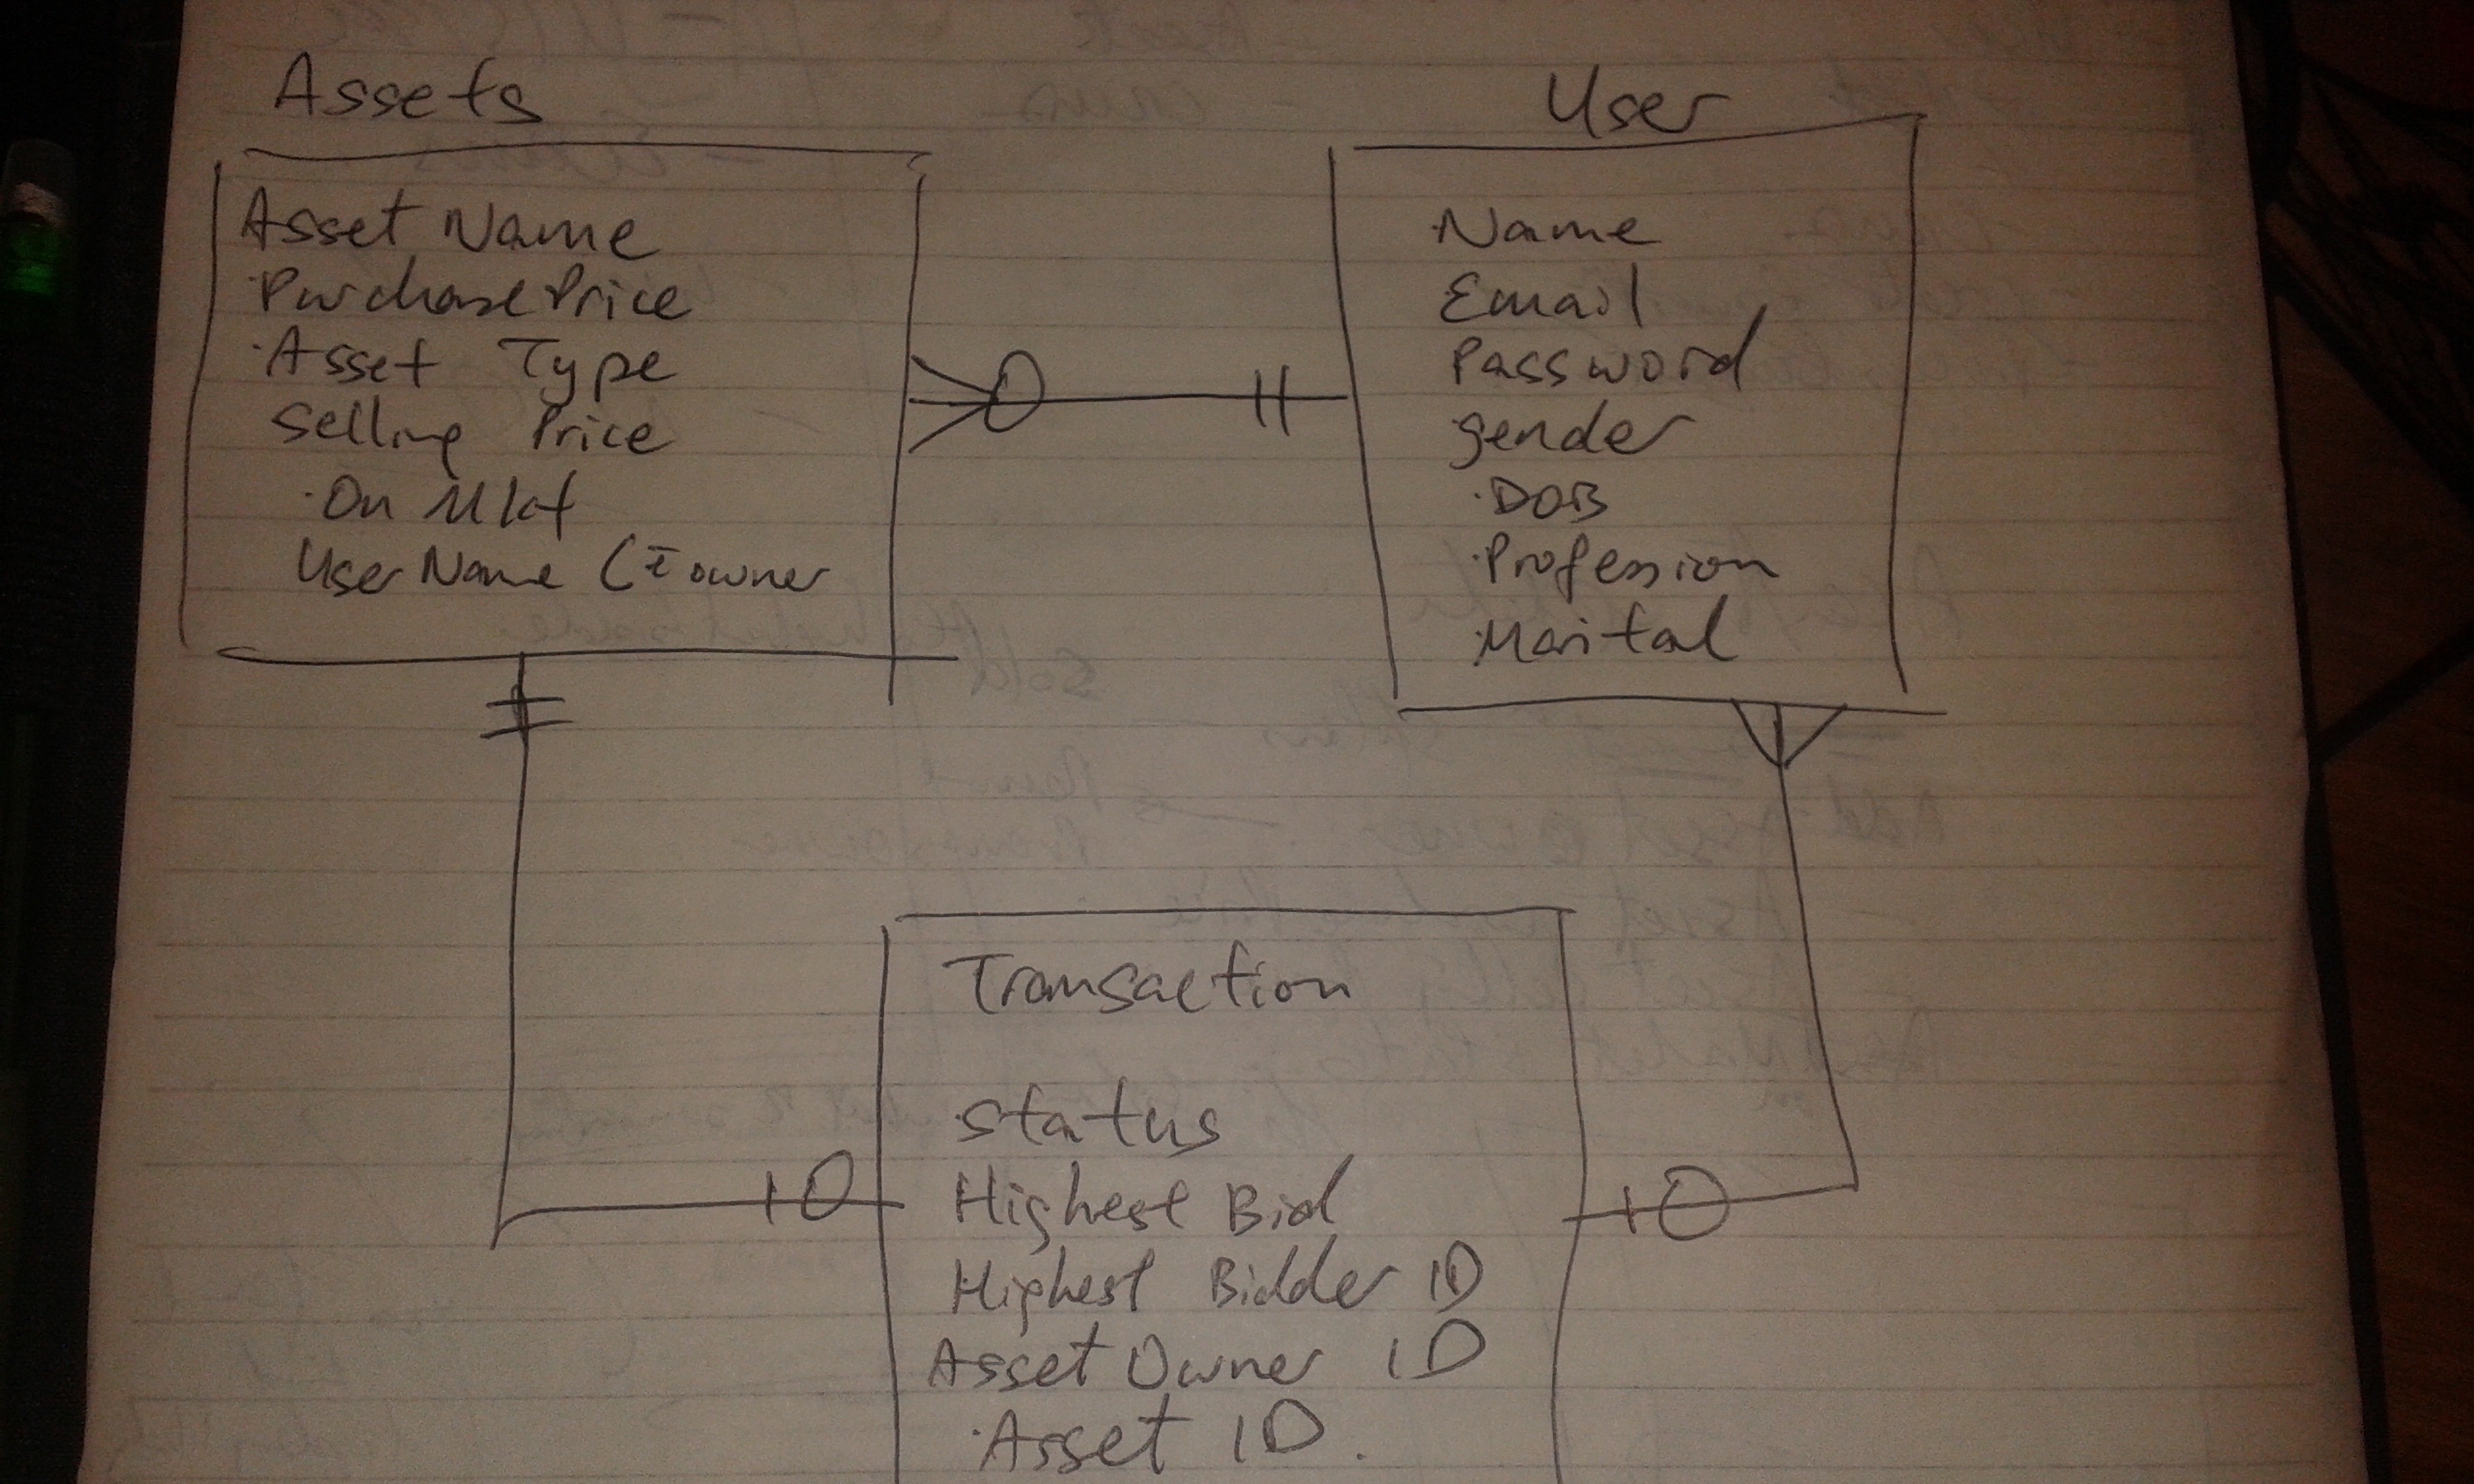 Assets
Asset Name
Purchase Price
Asset Type
Selling Price
On Mkt
User Name (= owner
User
Name
Email
Password
gender
DOB
Profession
Marital
Transaction
status
Highest Bid
Highest Bidder ID
Asset Owner ID
Asset ID.